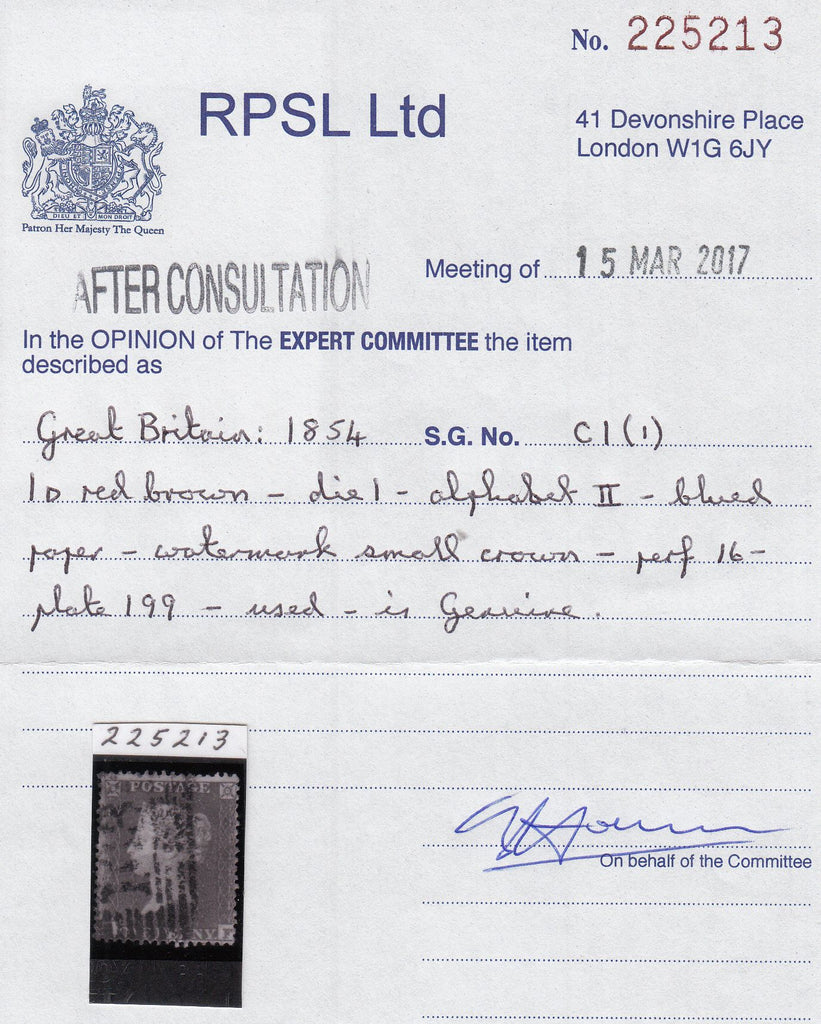 No. 225213
RPSL Ltd
41 Devonshire Place
London W1G 6JY
DIEU ET MON DROIT
Patron Her Majesty The Queen
AFTER CONSULTATION
Meeting of 15 MAR 2017
In the OPINION of The EXPERT COMMITTEE the item
described as
Great Britain: 1854 S.G. No. C1(1)
1D red brown – die 1 – alphabet II – blued
paper – watermark small crown – perf 16 –
plate 199 – used – is Genuine.
225213
POSTAGE
On behalf of the Committee